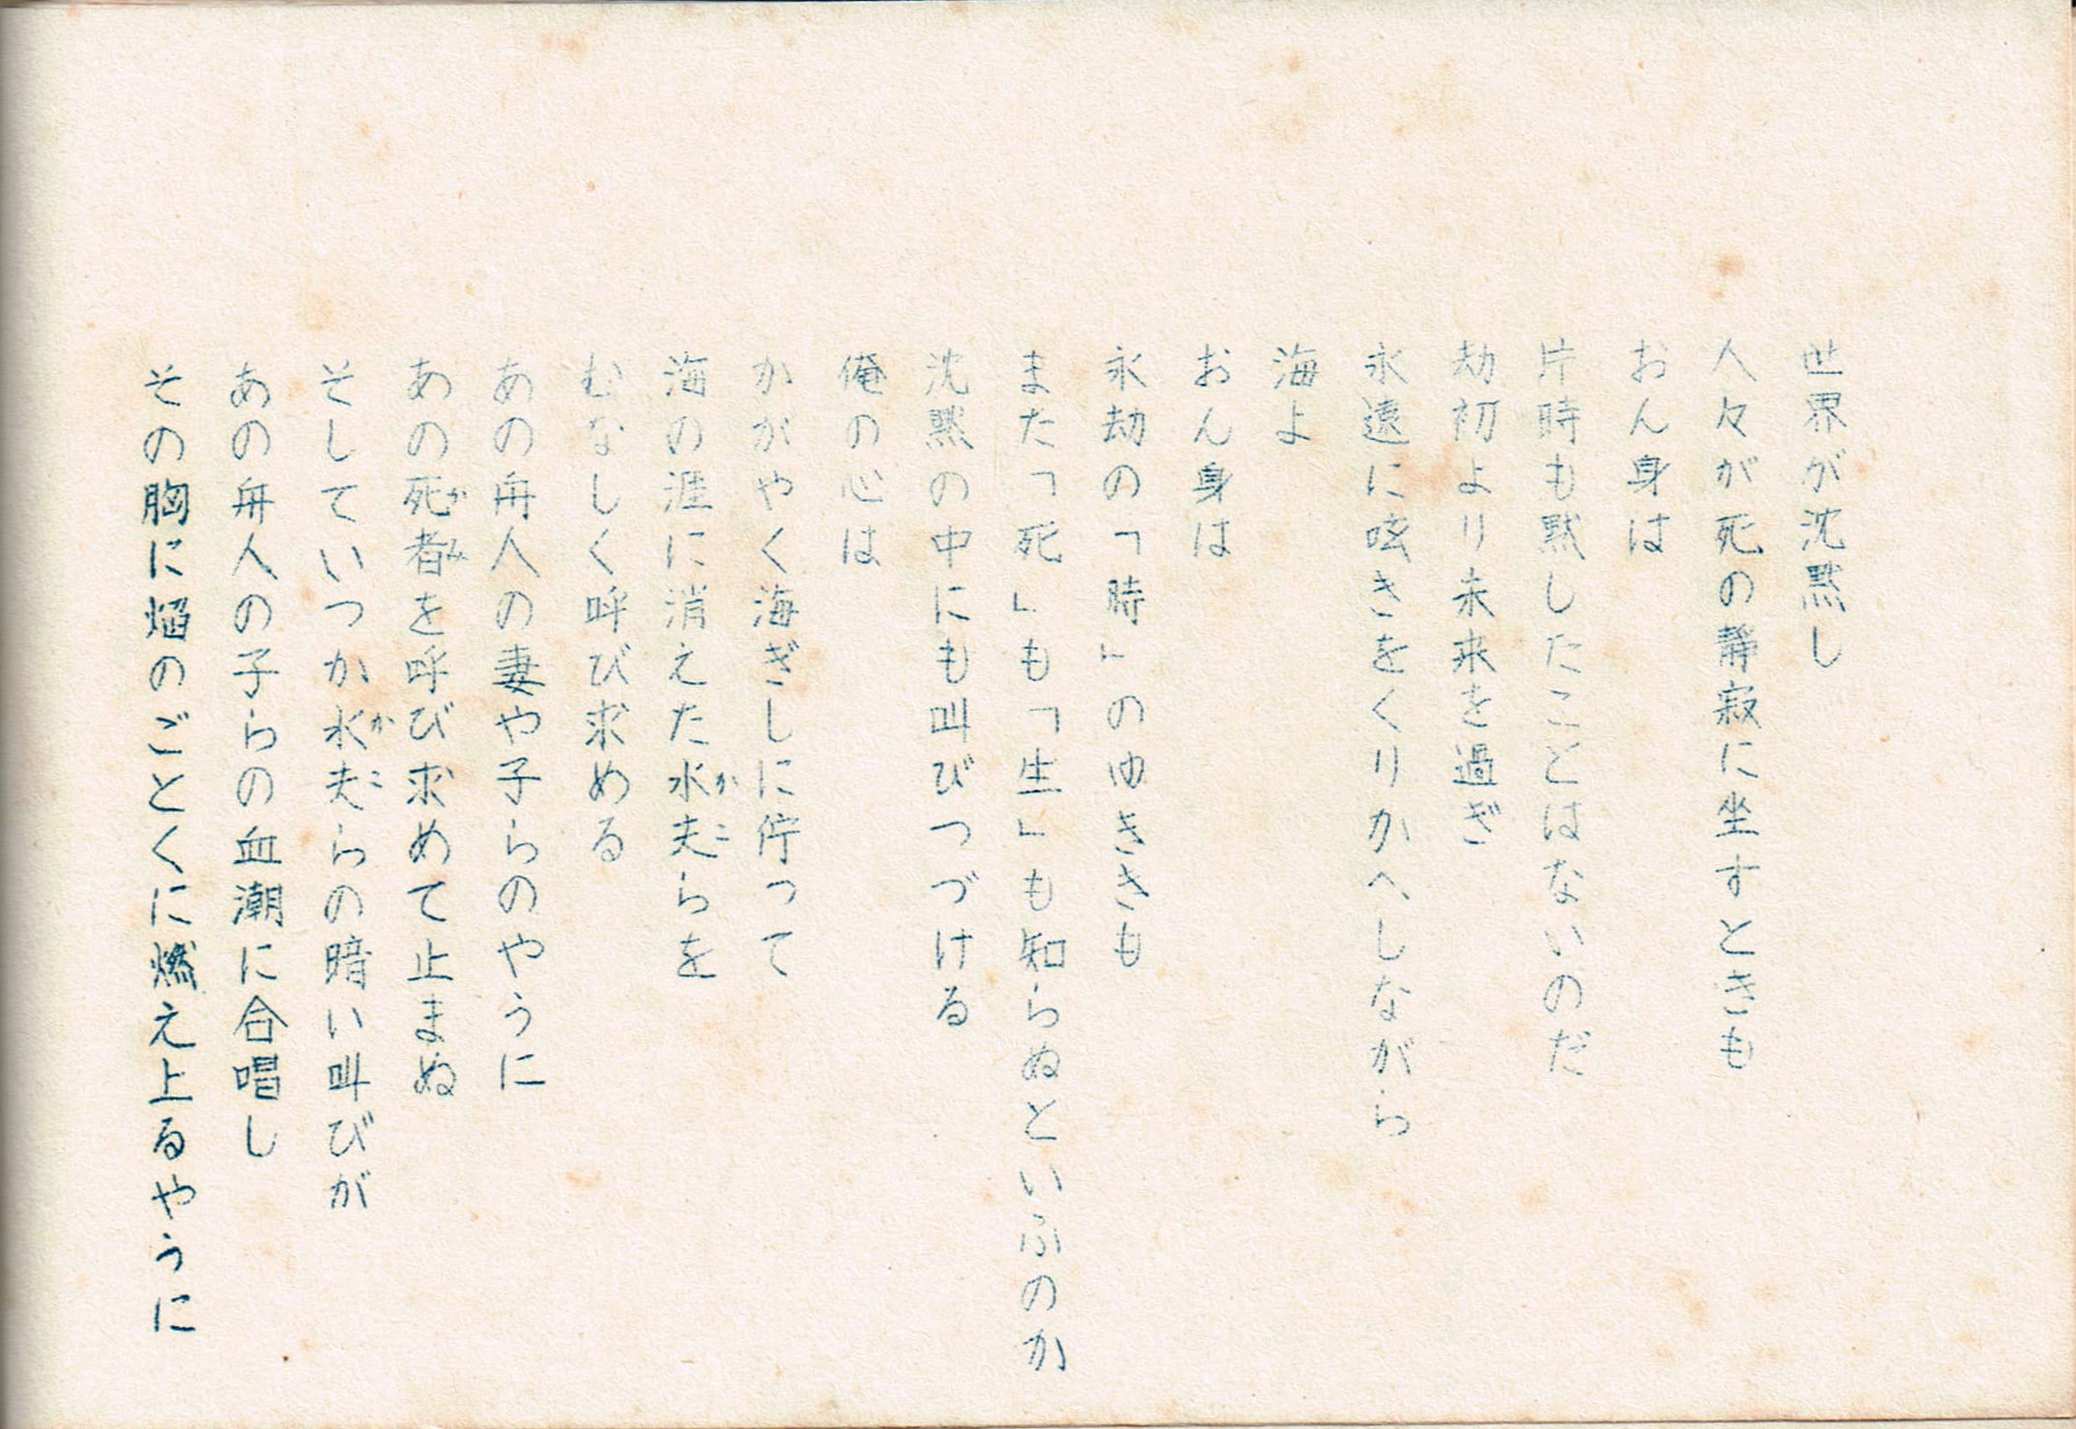 世界が沈黙し
人々が死の静寂に坐すときも
おん身は
片時も黙したことはないのだ
劫初より未来を過ぎ
永遠に呟きをくりかへしながら
海よ
おん身は
永劫の「時」のゆききも
また「死」も「生」も知らぬといふのか
沈黙の中にも叫びつづける
俺の心は
かがやく海ぎしに佇って
海の涯に消えた水夫らを
むなしく呼び求める
あの舟人の妻や子らのやうに
あの死者を呼び求めて止まぬ
そしていつか水夫らの暗い叫びが
あの舟人の子らの血潮に合唱し
その胸に焔のごとくに燃え上るやうに